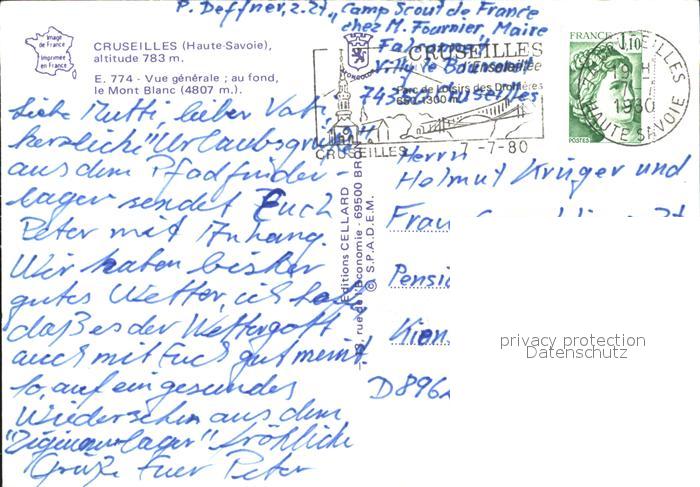 P. Deffner, z. Zt. „Camp Scout de France
chez M. Fournier, Maire
Villy le Bouveret
74350 Cruseilles
Image
de France
Imprimée
en France
CRUSEILLES (Haute-Savoie),
altitude 783 m.
E. 774 - Vue générale ; au fond,
le Mont Blanc (4807 m.).
CRUSEILLES
Parc de Loisirs des Dronières
CRUSEILLES
7-7-80
FRANCE
1,10
POSTES
CRUSEILLES
1980
HAUTE SAVOIE
Liebe Mutti, lieber Vati,
herzliche "Urlaubsgrüße"
aus dem Pfadfinder-
lager sendet Euch
Peter mit Anhang.
Wir haben bisher
gutes Wetter, ich hoffe,
daß es der Wettergott
auch mit Euch gut meint.
So, auf ein gesundes
Wiedersehen aus dem
"Zigeunerlager" fröhliche
Grüße Euer Peter
Editions CELLARD
rue de l'Economie - 69500 BRON
© S.P.A.D.E.M.
Herrn
Helmut Krüger und
Frau
Pensi
Kien
D 896
privacy protection
Datenschutz